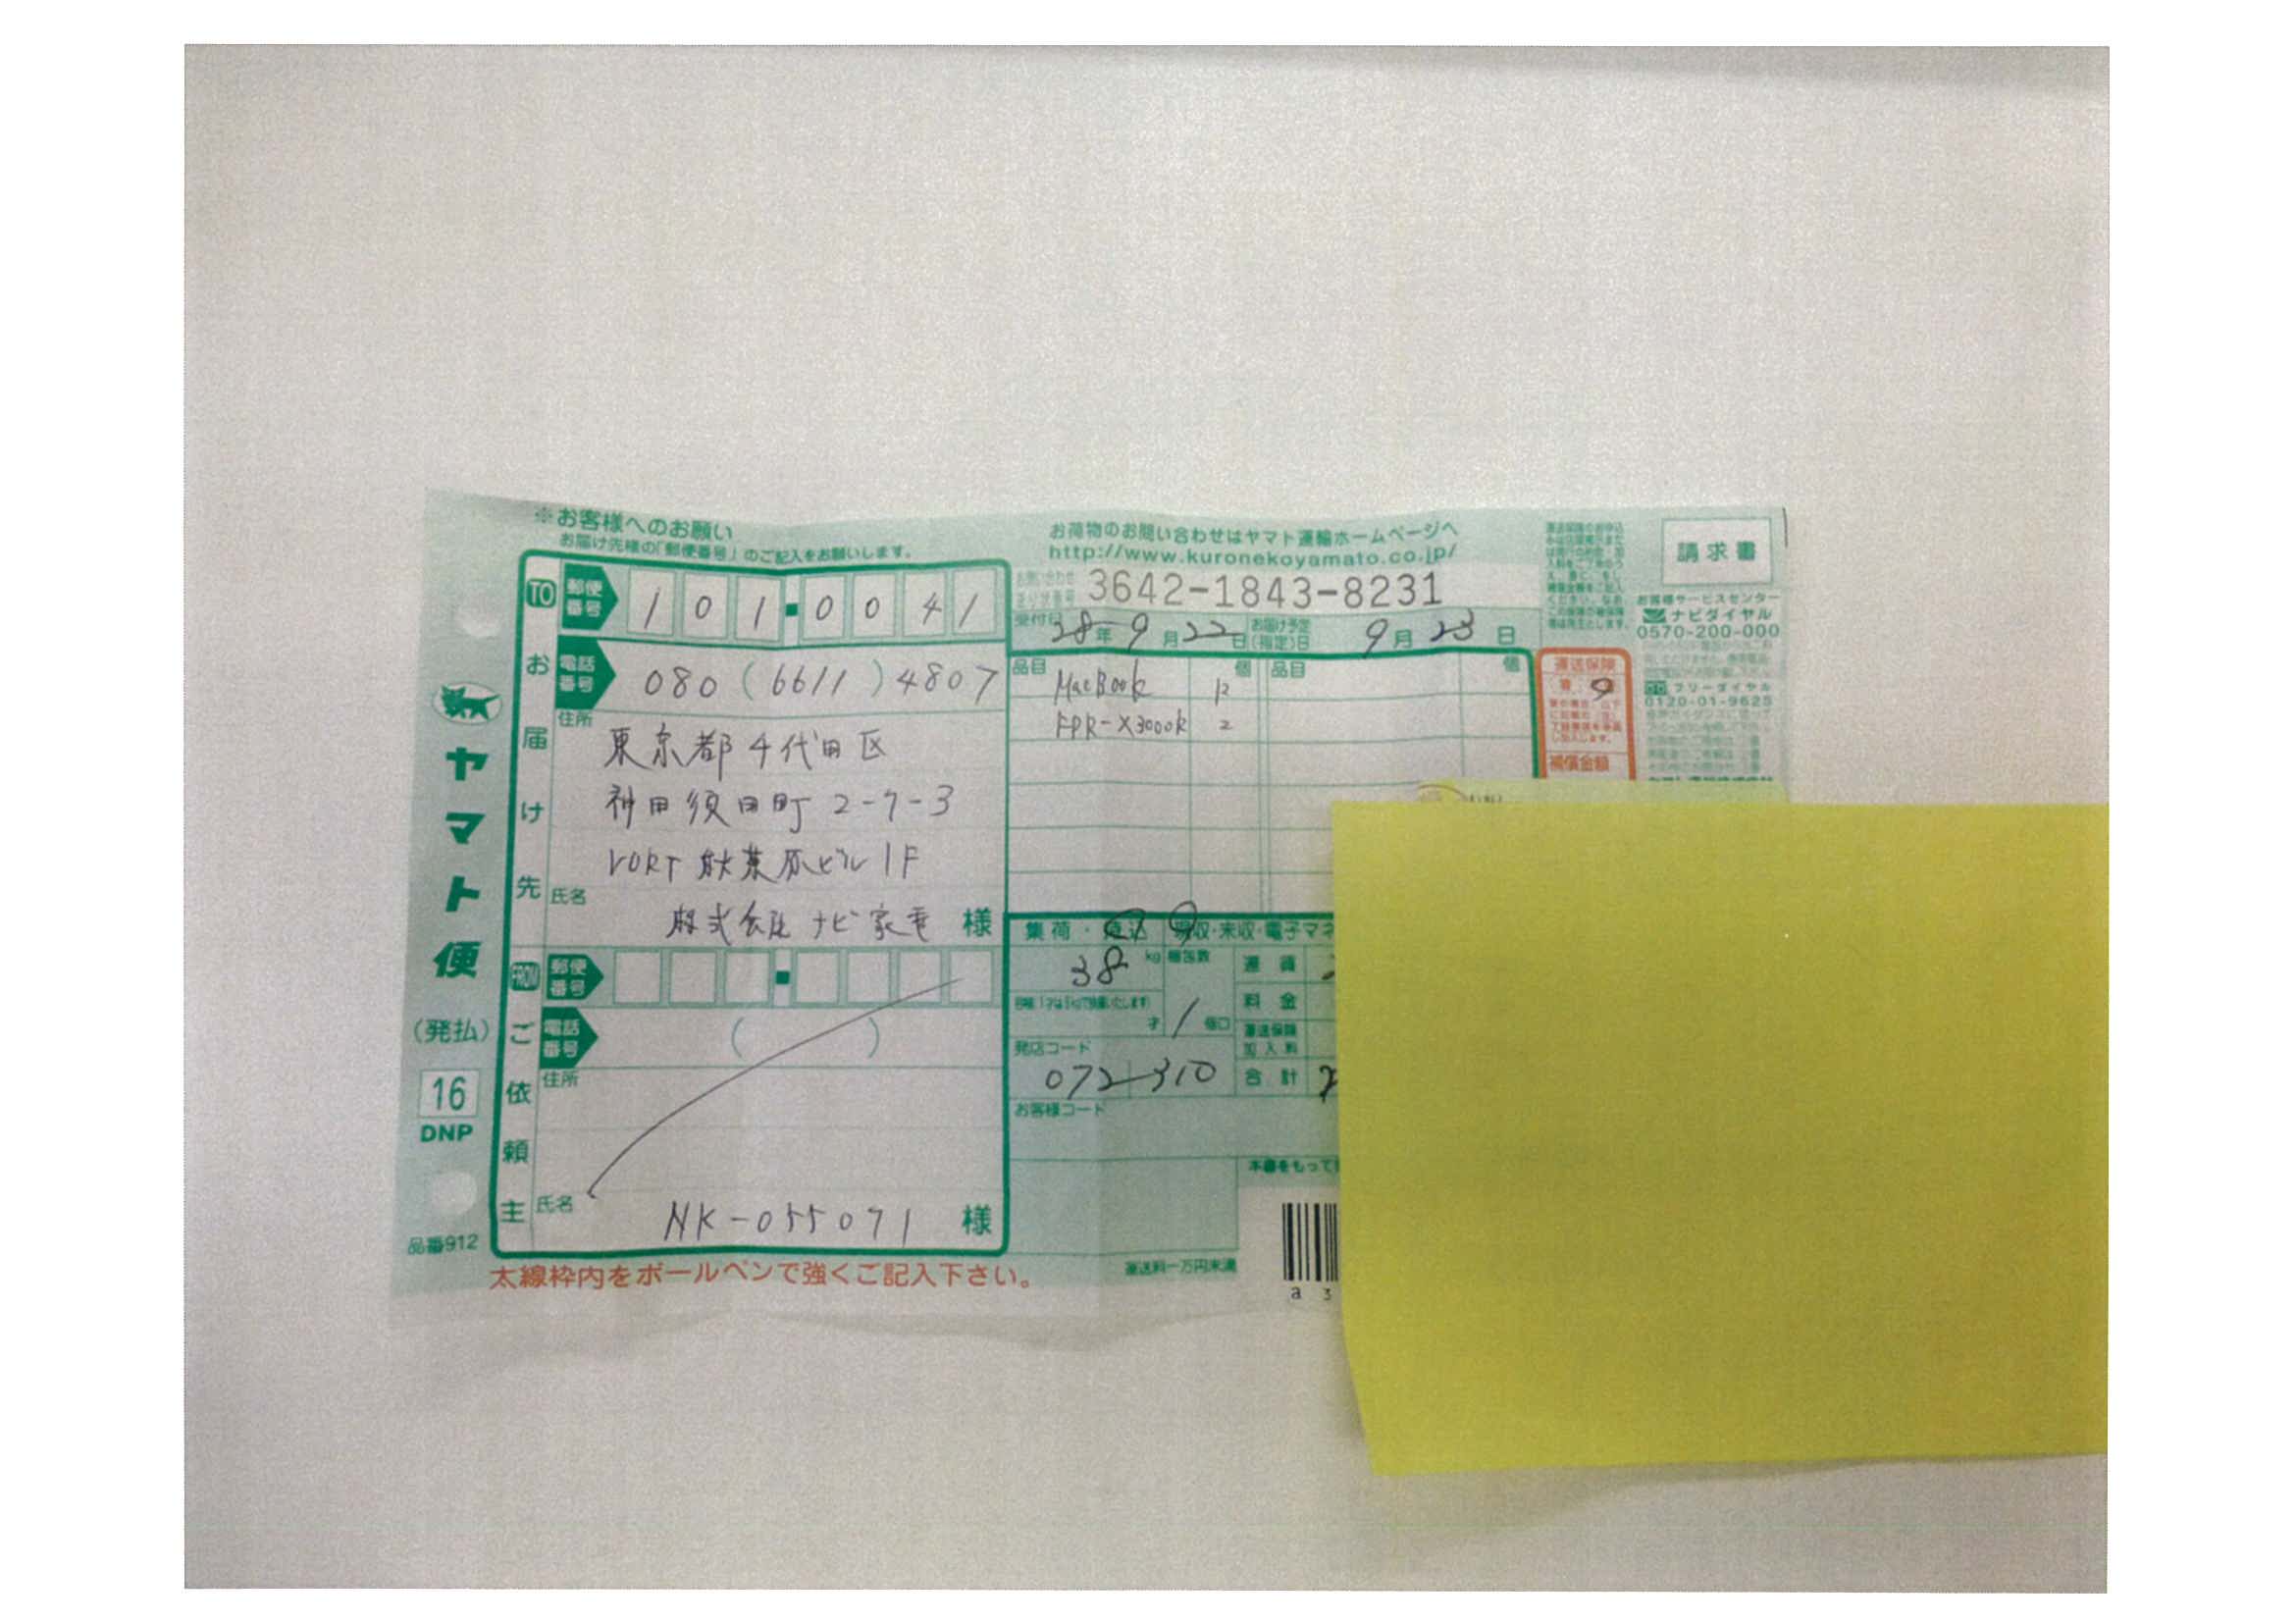 ※お客様へのお願い
お届け先様の「郵便番号」のご記入をお願いします。
お荷物のお問い合わせはヤマト運輸ホームページへ
http://www.kuronekoyamato.co.jp/
3642-1843-8231
受付日 28年9月22日 お届け予定(指定)日 9月23日
請求書
お客様サービスセンター
ナビダイヤル
0570-200-000
フリーダイヤル
0120-01-9625
ヤマト便
(発払)
16
DNP
品番912
TO お届け先
郵便番号 101-0041
電話番号 080(6611)4807
住所
東京都千代田区
神田須田町2-7-3
VORT秋葉原ビル1F
氏名
株式会社ナビ家電 様
FROM ご依頼主
郵便番号
電話番号 ( )
住所
氏名
NK-055071 様
太線枠内をボールペンで強くご記入下さい。
品目 個 品目 個
MacBook 12
FPR-X3000R 2
運送保険
補償金額
集荷・
収・未収・電子マネ
38 kg 梱包数
才 1 個口
運賃
料金
運送保険
加入料
発店コード
072-310
合計
お客様コード
本書をもって
運送料一万円未満
a 3